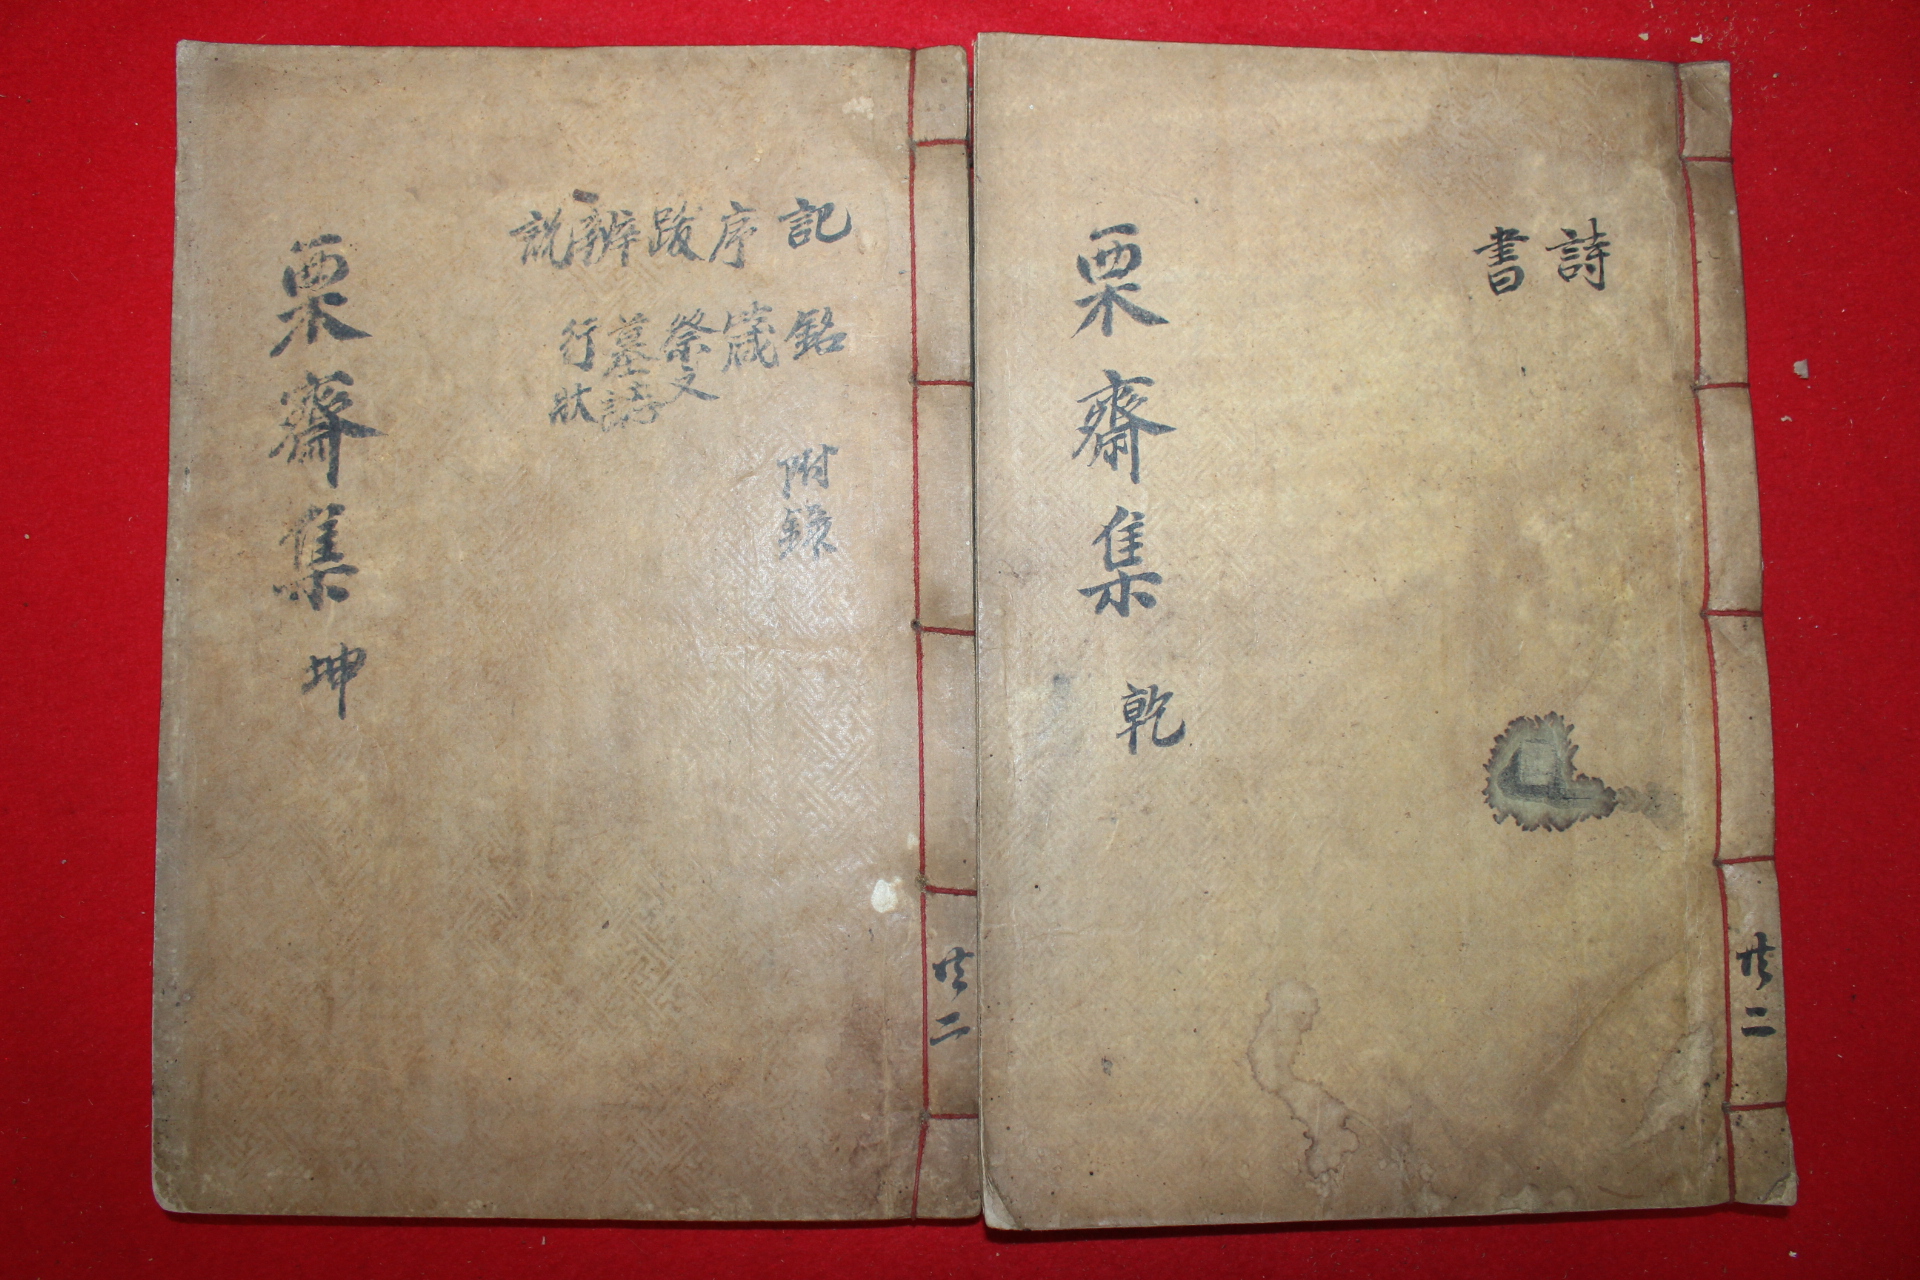 詩
書
栗齋集 乾
共二
記 序 跋 辨 說
銘 箴 祭文 墓誌 行狀
附錄
栗齋集 坤
共二